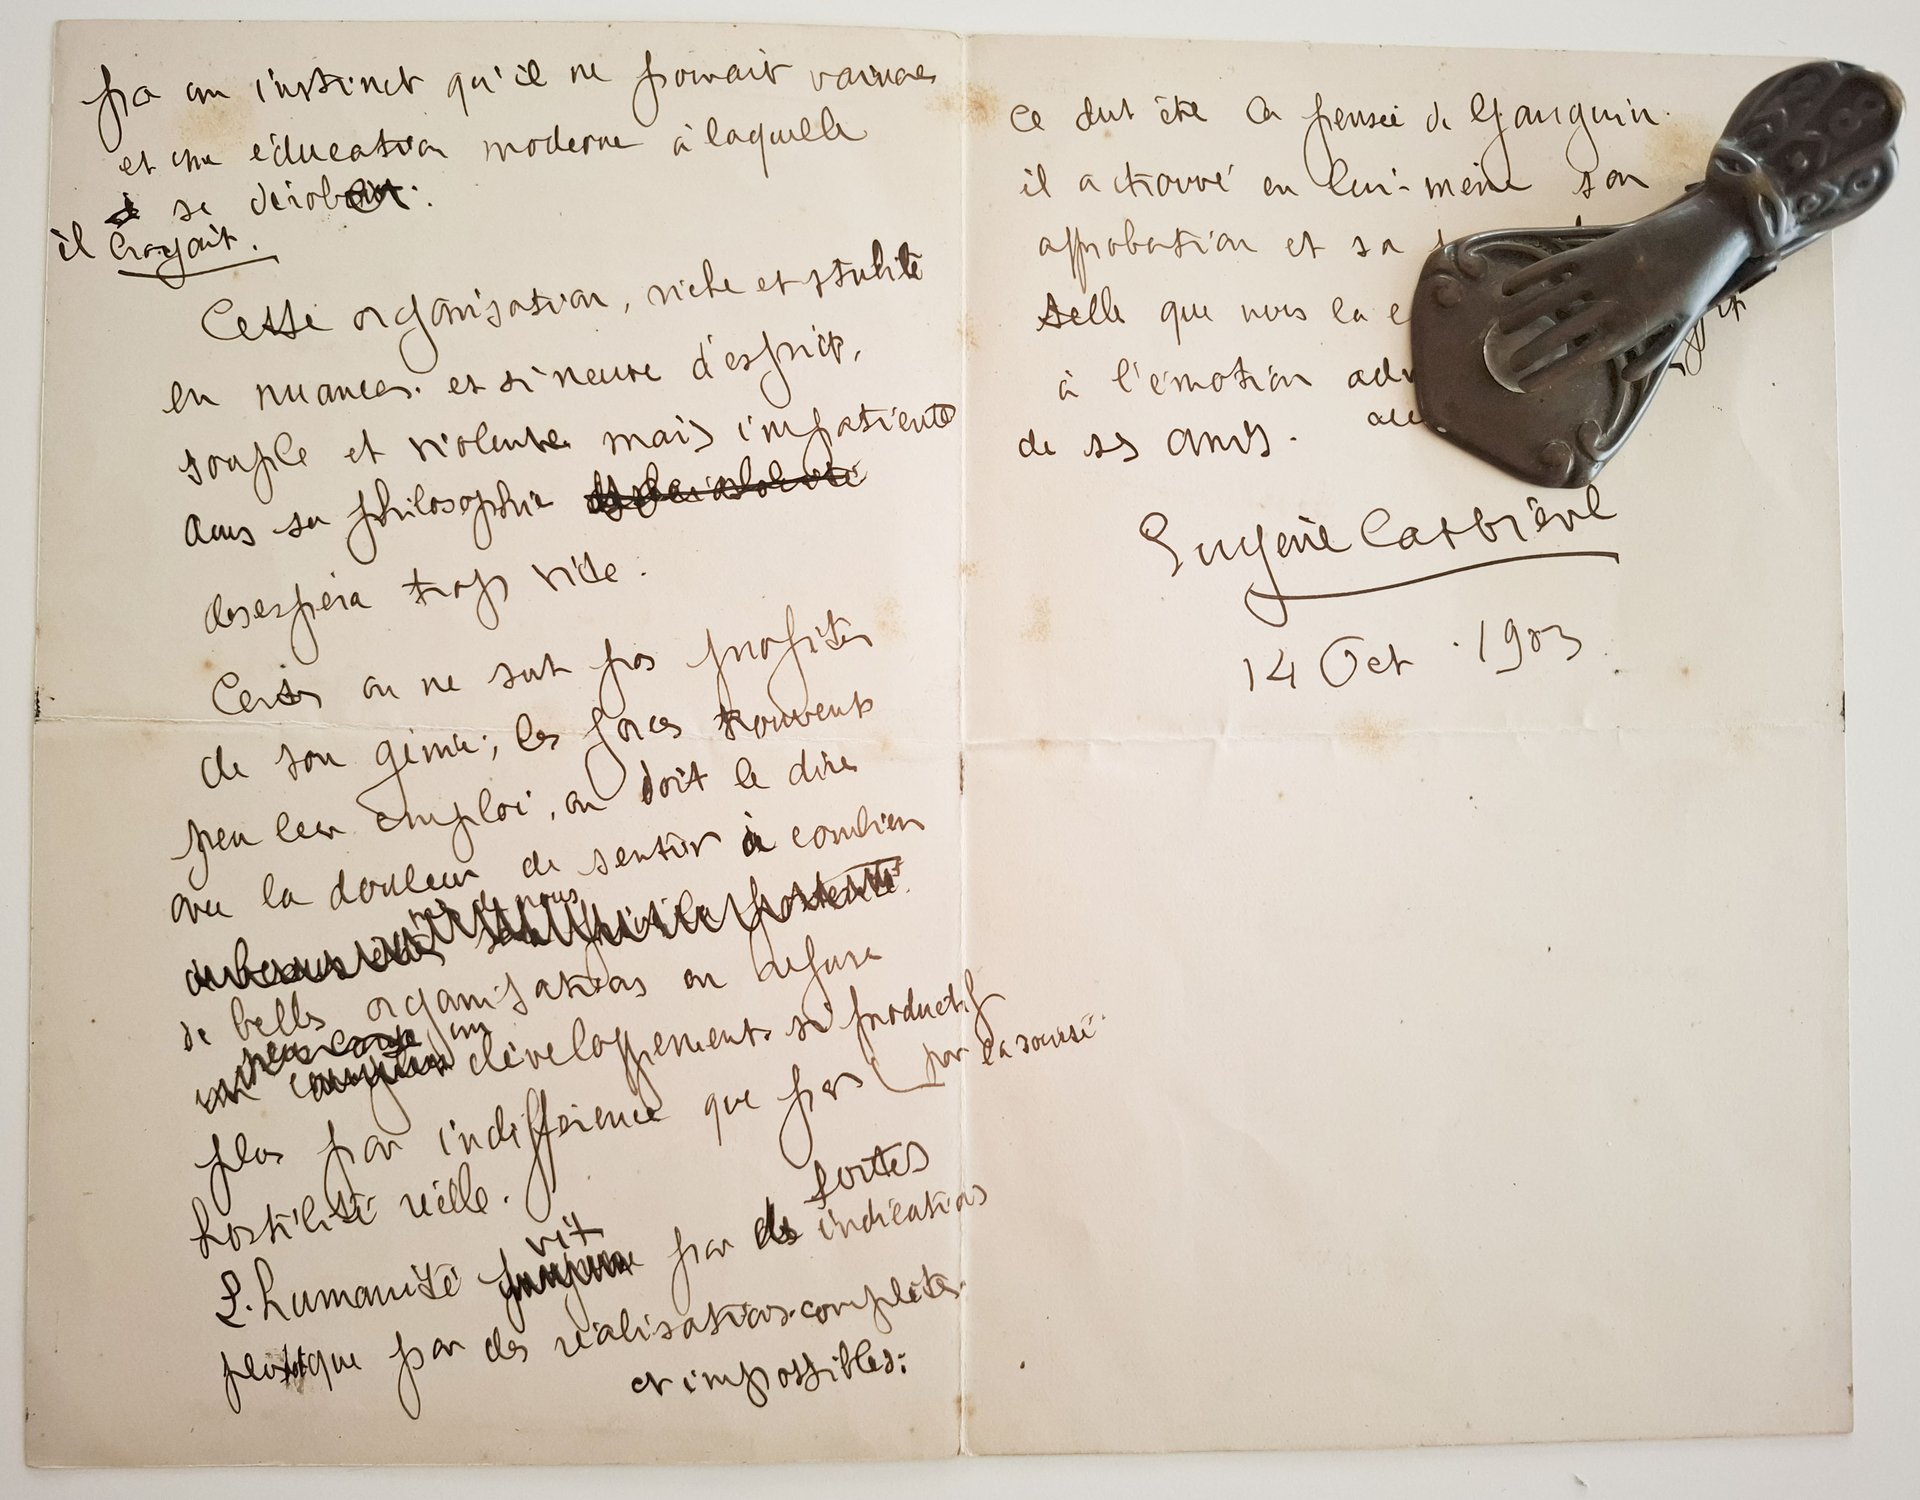 par un instinct qu'il ne pouvait vaincre
et une éducation moderne à laquelle
il croyait se dérober.
Cette organisation, riche et subtile
en nuances. et si neuve d'esprit,
souple et violente mais impatiente
dans sa philosophie
desespéra trop vite.
Certes on ne sut pas profiter
de son génie; les forces trouvent
peu leur emploi, on doit le dire
avec la douleur de sentir à combien
de belles organisations on refuse
un développement si productif
par la société
plus par indifférence que par
hostilité réelle.
L'humanité vit par de fortes indications
plus que par des réalisations complètes
et impossibles.
Ce dut être la pensée de Gauguin.
il a trouvé en lui-même son
approbation et sa
telle que nous la
à l'émotion
de ses amis.
Eugène Carrière
14 Oct. 1903